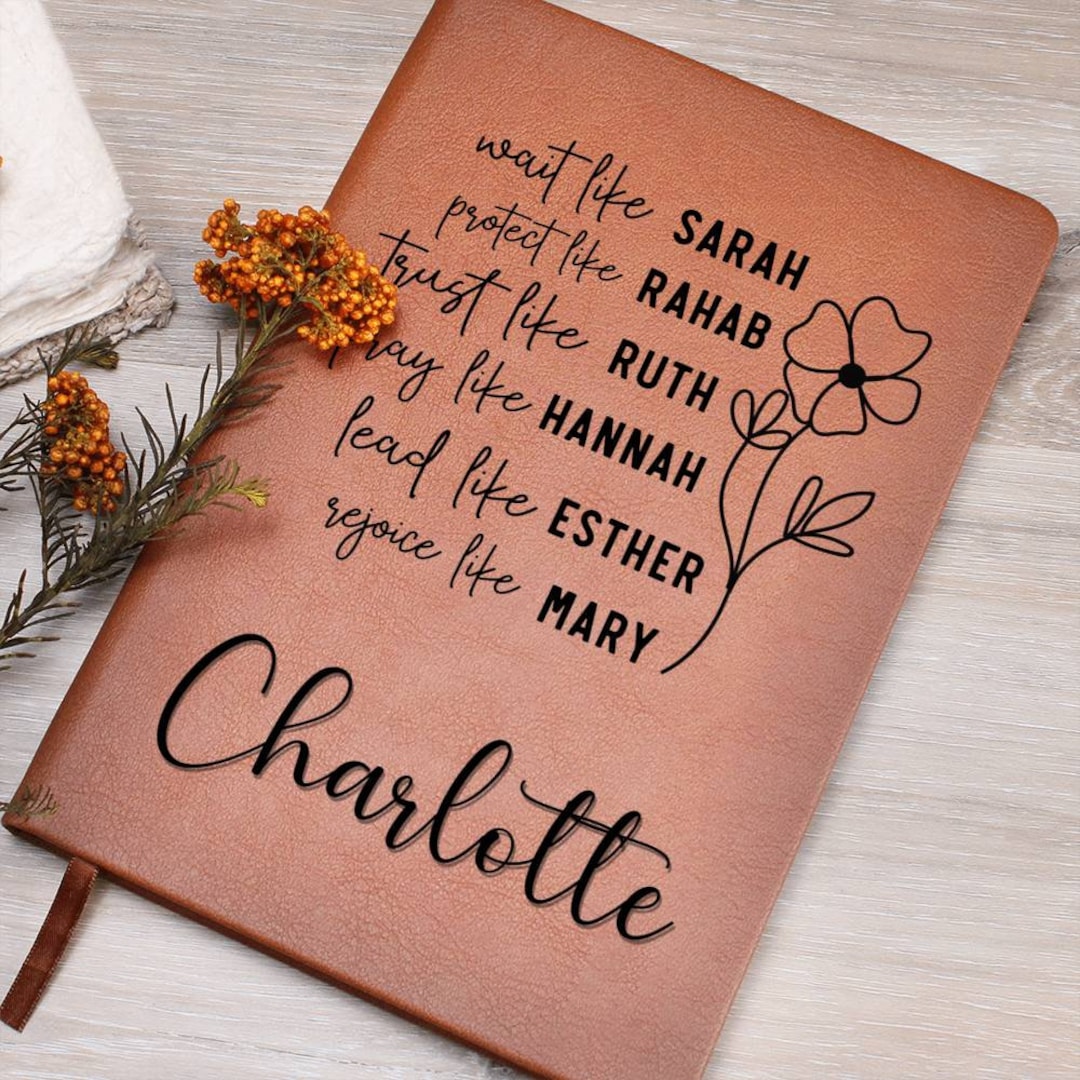 wait like SARAH
protect like RAHAB
trust like RUTH
pray like HANNAH
lead like ESTHER
rejoice like MARY
Charlotte